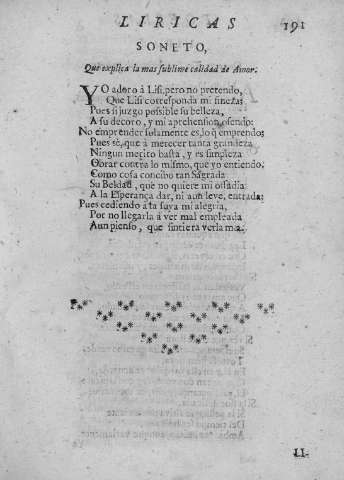 LIRICAS 191
SONETO,
Que explica la mas sublime calidad de Amor.
YO adoro à Lisi, pero no pretendo,
Que Lisi corresponda mi fineza;
Pues si juzgo possible su belleza,
A su decoro, y mi aprehension ofendo:
No emprender solamente es, lo q̃ emprendo;
Pues sè, que à merecer tanta grandeza
Ningun merito basta, y es simpleza
Obrar contra lo mismo, que yo entiendo.
Como cosa concibo tan Sagrada
Su Beldad, que no quiere mi ossadia
A la Esperança dar, ni aun leve, entrada:
Pues cediendo à la suya mi alegria,
Por no llegarla à ver mal empleada
Aun pienso, que sintiera verla mia.